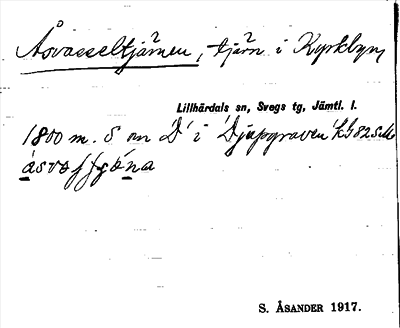 Åsvasseltjärnen, tjärn i Kyrkbyn,
Lillhärdals sn, Svegs tg, Jämtl. l.
1800 m. S om D' i 'Djupgraven'
S. ÅSANDER 1917.